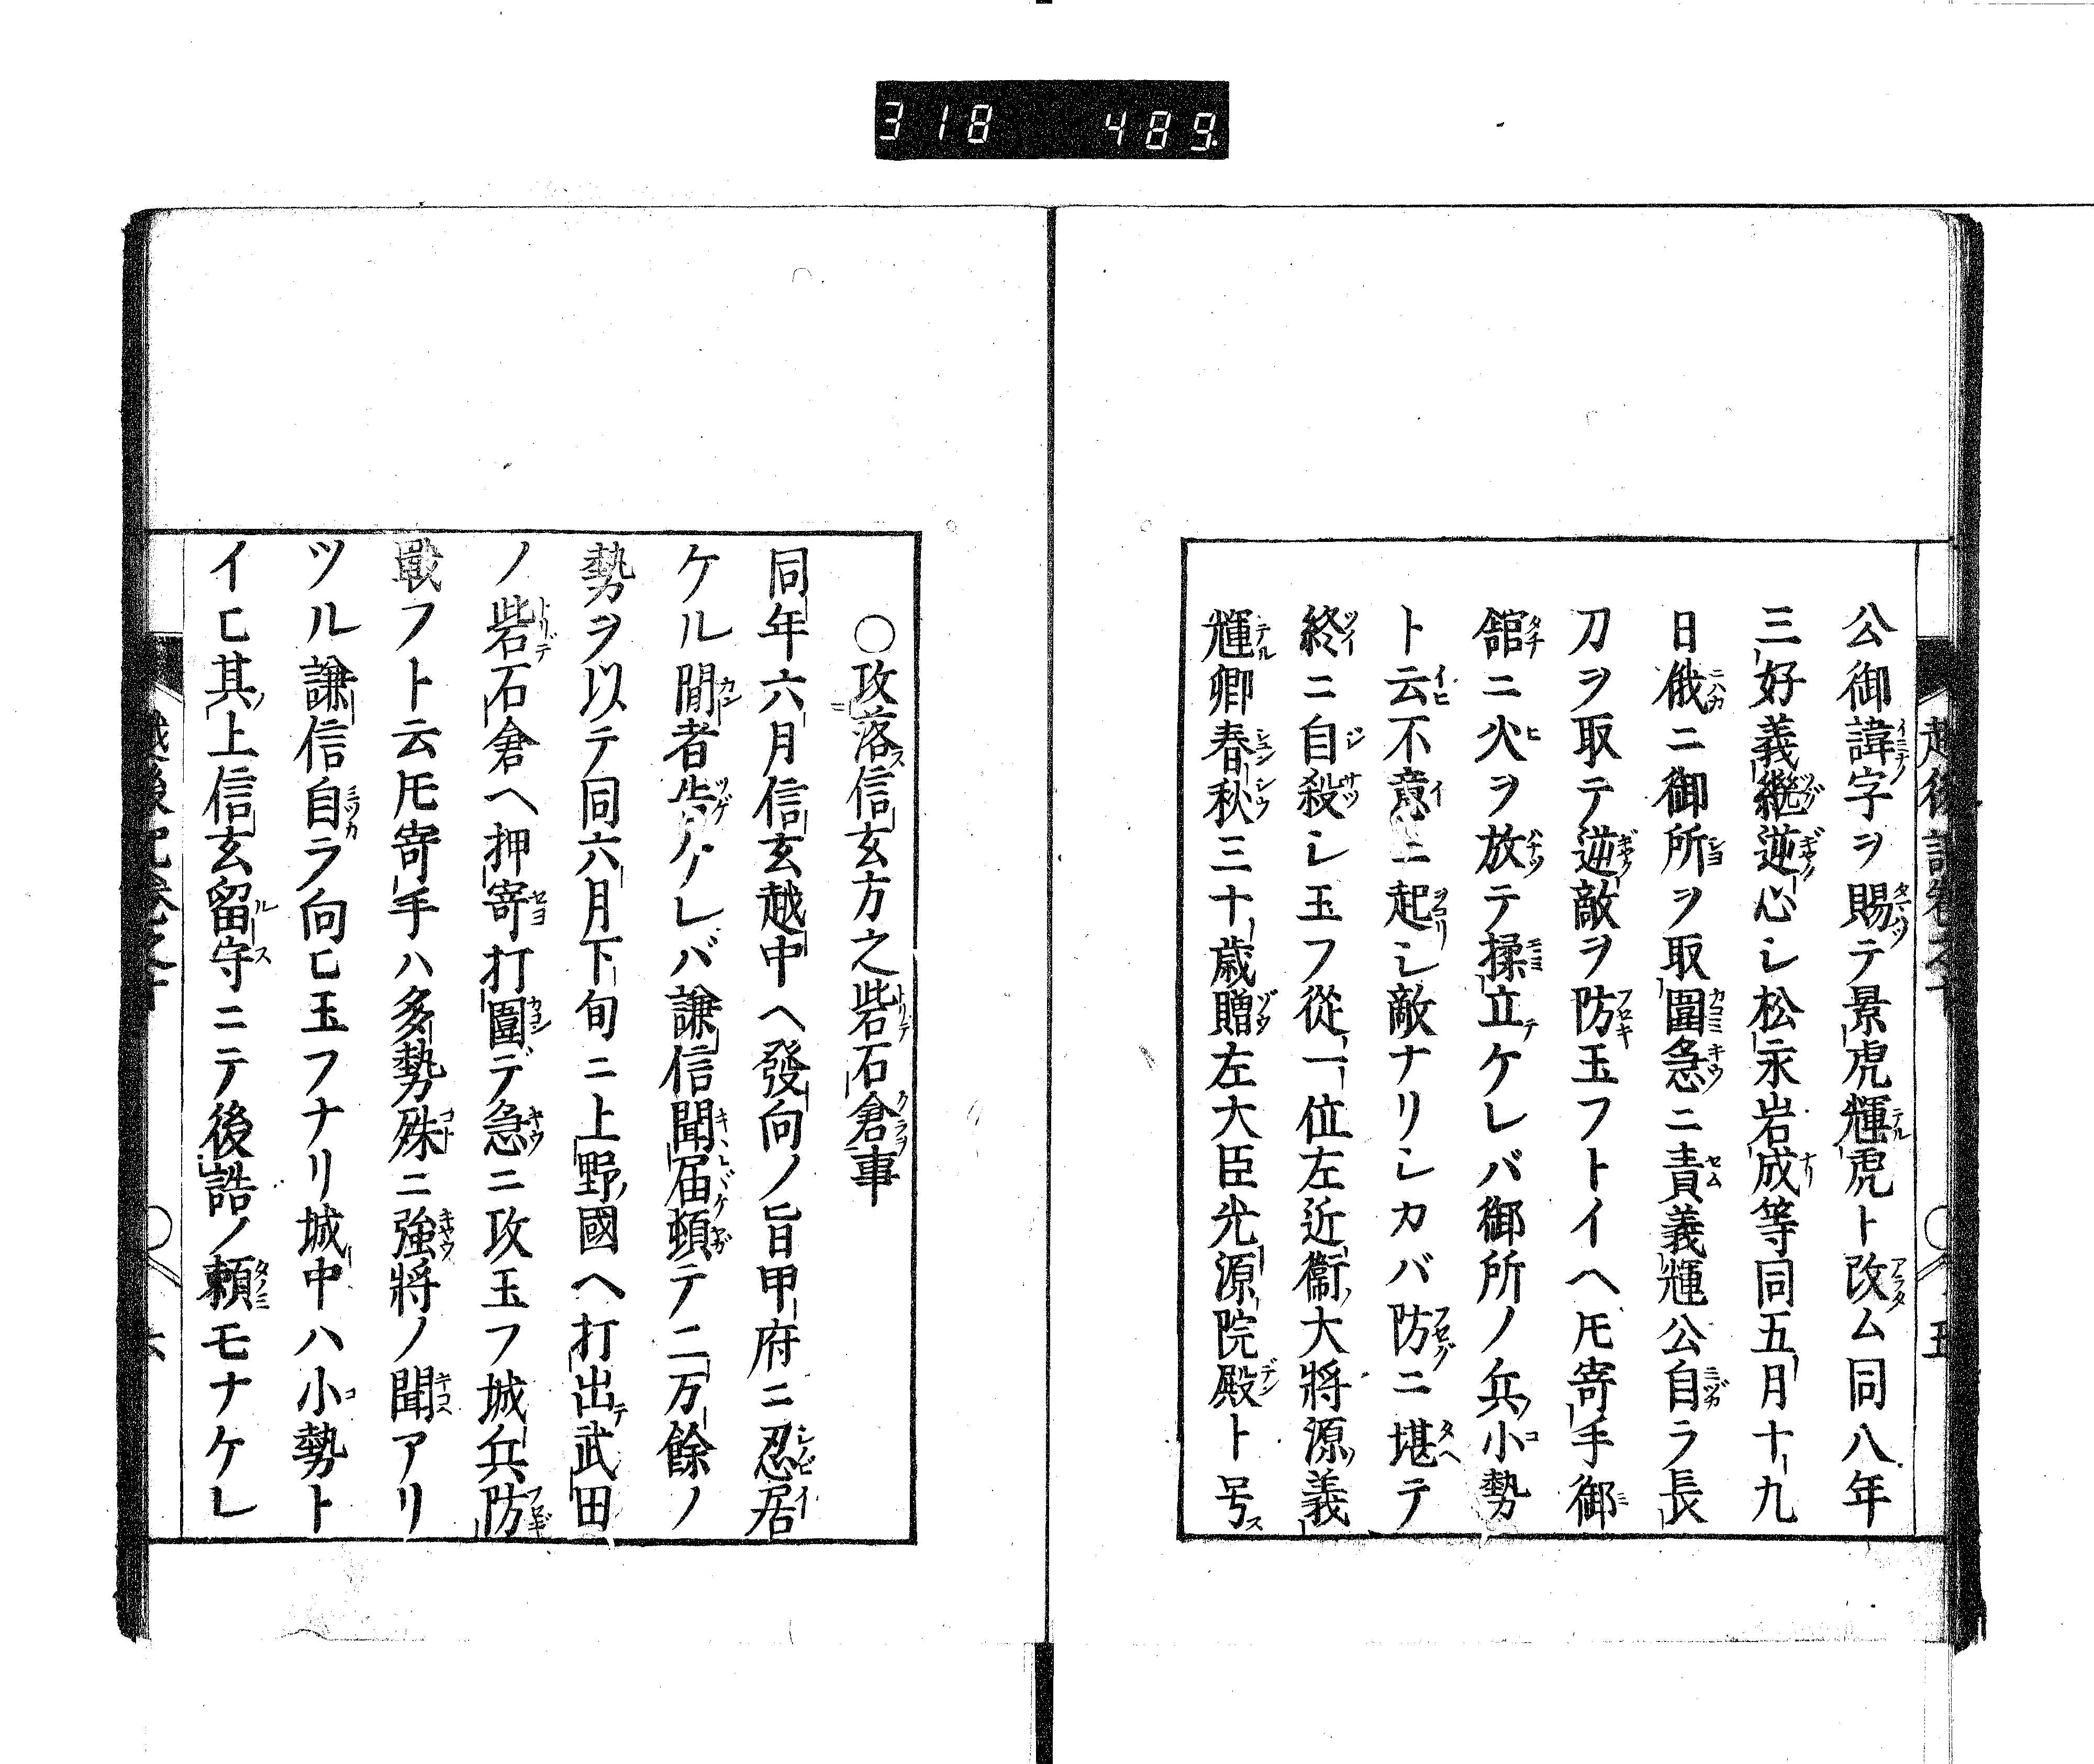 318 489
公御諱字ヲ賜テ景虎輝虎ト改ム同八年
三好義継逆心シ松永岩成等同五月十九
日俄ニ御所ヲ取圍急ニ責義輝公自ラ長
刀ヲ取テ逆敵ヲ防玉フトイヘ𪜈寄手御
舘ニ火ヲ放テ揉立ケレバ御所ノ兵小勢
ト云不意ニ起シ敵ナリシカバ防ニ堪テ
終ニ自殺シ玉フ從一位左近衞大將源義
輝卿春秋三十歳贈左大臣光源院殿ト号
○攻落信玄方之砦石倉事
同年六月信玄越中ヘ發向ノ旨甲府ニ忍居
ケル間者告クレバ謙信聞届頓テ二万餘ノ
勢ヲ以テ同六月下旬ニ上野國ヘ打出武田
ノ砦石倉ヘ押寄打圍デ急ニ攻玉フ城兵防
戰フト云𪜈寄手ハ多勢殊ニ強將ノ聞アリ
ツル謙信自ラ向ヒ玉フナリ城中ハ小勢ト
イヒ其上信玄留守ニテ後詰ノ頼モナケレ